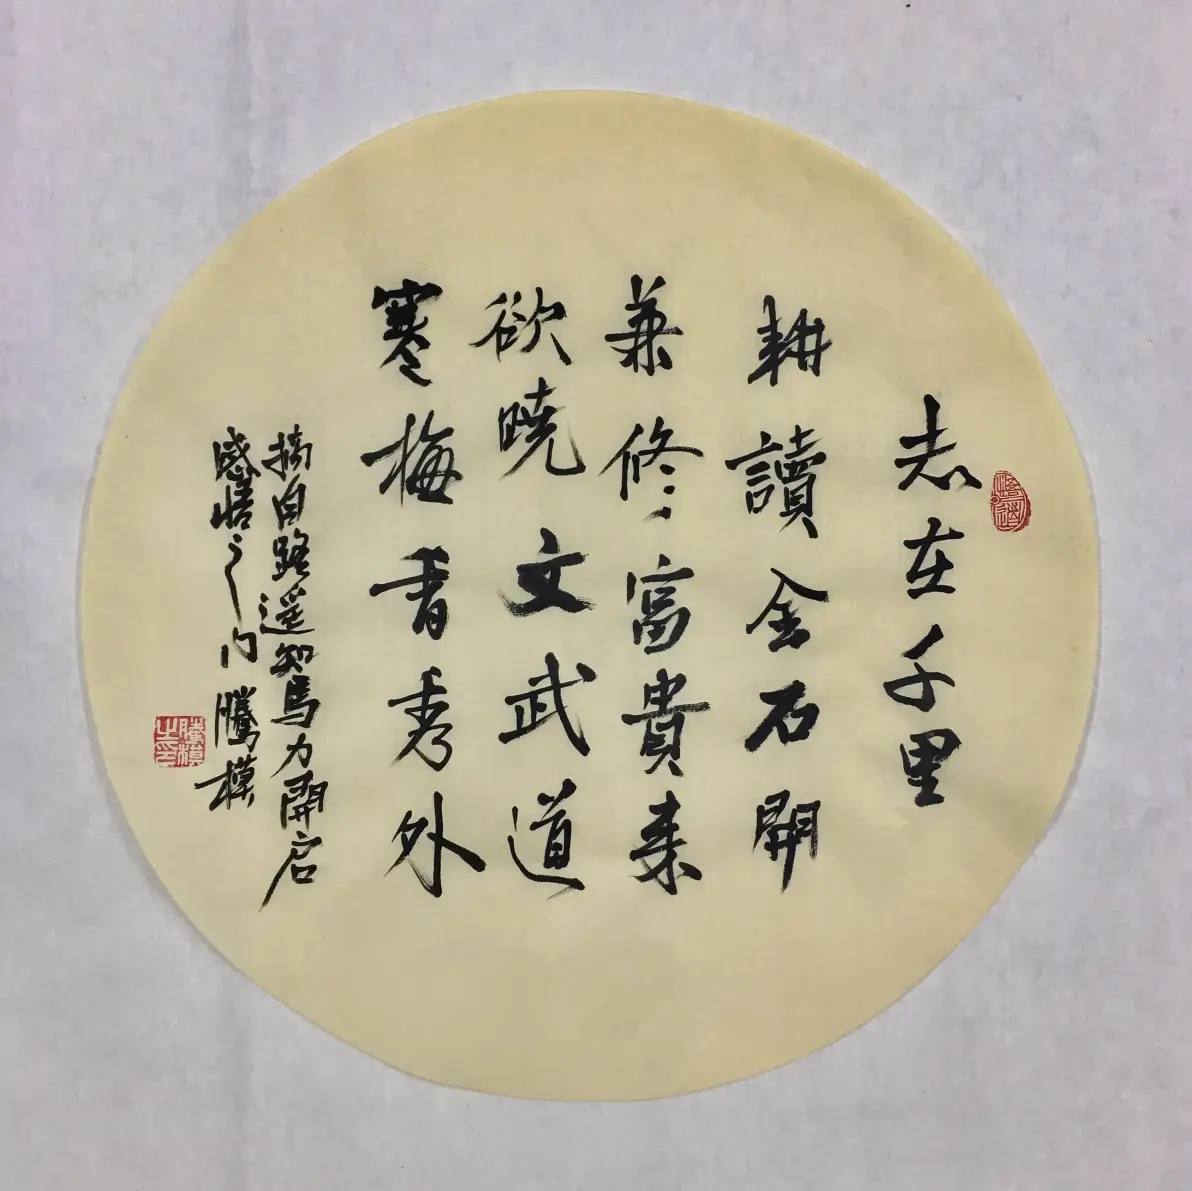 志在千里
耕讀金石開
兼修富貴来
欲曉文武道
寒梅香秀外
摘自路遥知馬力開启
感悟之门 騰模
騰模之印